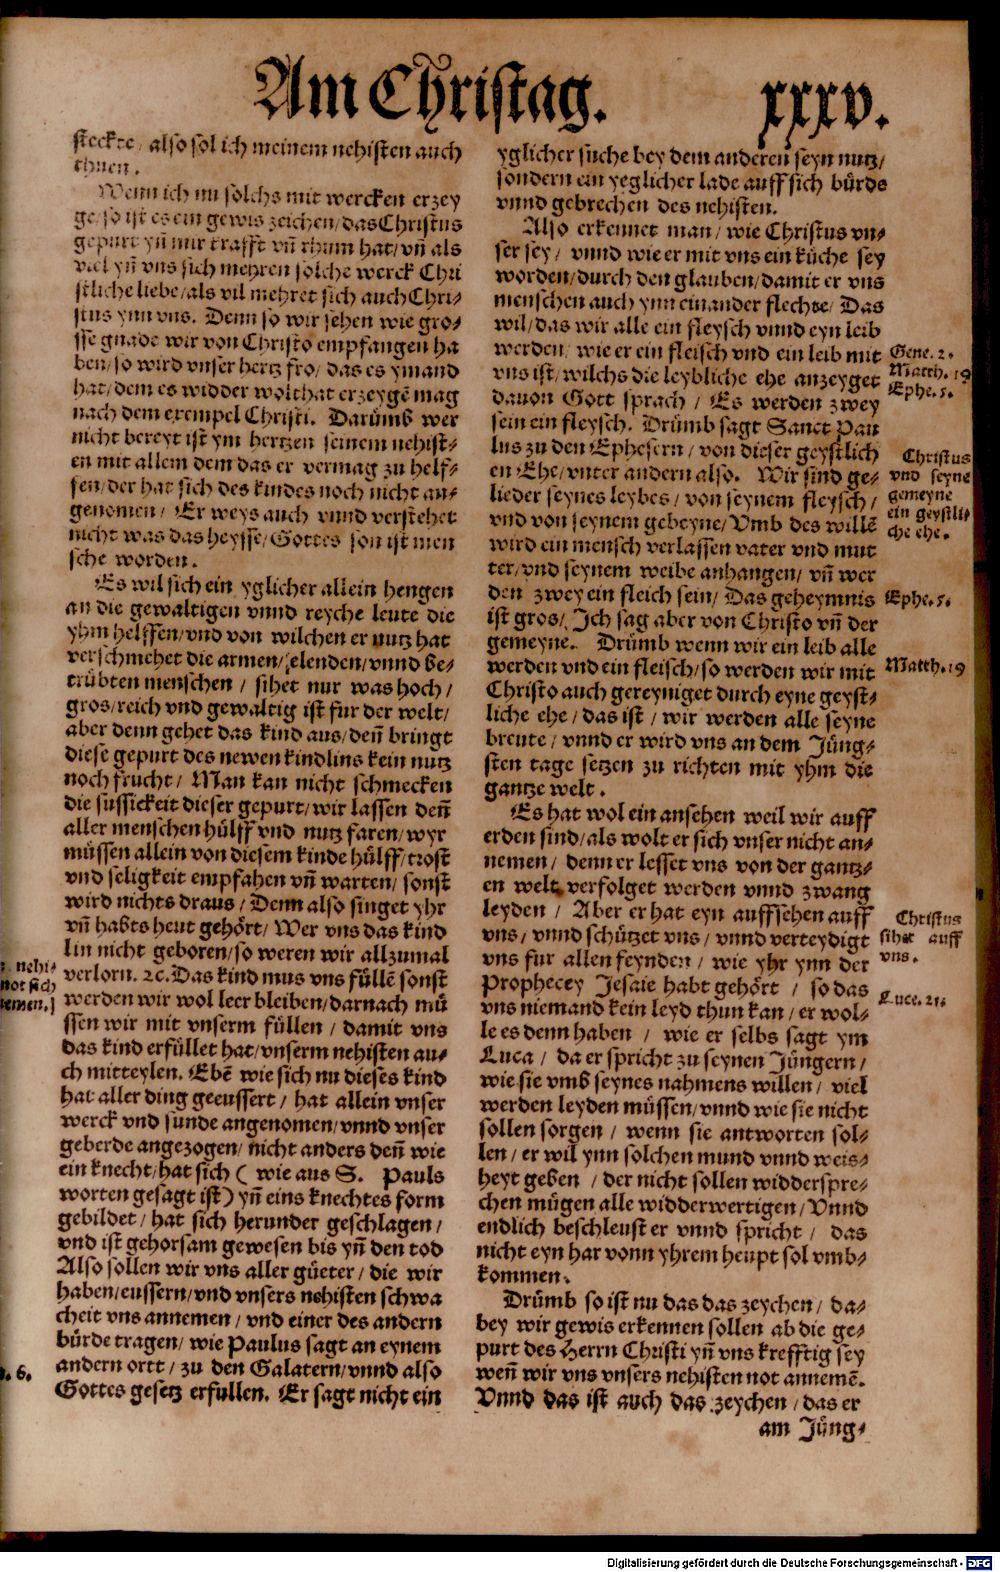 Am Christag. xxxv.
steckte / also sol ich meinem nehisten auch
thuen.
Wenn ich nu solchs mit wercken erzey
ge / so ist es ein gewis zeichen / das Christus
gepurt yñ mir krafft vñ rhum hat / vñ als
viel yñ vns sich mehren solche werck Chri
stliche liebe / als vil mehret sich auch Chri⸗
stus ynn vns. Denn so wir sehen wie gro⸗
sse gnade wir von Christo empfangen ha
ben / so wird vnser hertz fro / das es ymand
hat / dem es widder wolthat erzeygẽ mag
nach dem exempel Christi. Darümb wer
nicht bereyt ist ym hertzen seinem nehist⸗
en mit allem dem das er vermag zu helf⸗
fen / der hat sich des kindes noch nicht an⸗
genomen / Er weys auch vnnd verstehet
nicht was das heysse / Gottes son ist men
sche worden.
Es wil sich ein yglicher allein hengen
an die gewaltigen vnnd reyche leute die
yhm helffen / vnd von wilchen er nutz hat
verschmehet die armen / elenden / vnnd be⸗
trübten menschen / sihet nur was hoch /
gros / reich vnd gewaltig ist fur der welt /
aber denn gehet das kind aus / deñ bringt
diese gepurt des newen kindlins kein nutz
noch frucht / Man kan nicht schmecken
die sussickeit dieser gepurt / wir lassen deñ
aller menschen hülff vnd nutz faren / wyr
müssen allein von diesem kinde hülff / trost
vnd seligkeit empfahen vñ warten / sonst
wird nichts draus / Denn also singet yhr
vñ habts heut gehört / Wer vns das kind
lin nicht geboren / so weren wir allzumal
verlorn. ⁊c. Das kind mus vns füllẽ sonst
werden wir wol leer bleiben / darnach mü
ssen wir mit vnserm füllen / damit vns
das kind erfüllet hat / vnserm nehisten au⸗
ch mitteylen. Ebẽ wie sich nu dieses kind
hat aller ding geeussert / hat allein vnser
werck vnd sunde angenomen / vnnd vnser
geberde angezogen / nicht anders deñ wie
ein knecht / hat sich ( wie aus S. Pauls
worten gesagt ist ) yñ eins knechtes form
gebildet / hat sich herunder geschlagen /
vnd ist gehorsam gewesen bis yñ den tod
Also sollen wir vns aller güeter / die wir
haben / eussern / vnd vnsers nehisten schwa
cheit vns annemen / vnd einer des andern
bürde tragen / wie Paulus sagt an eynem
andern ortt / zu den Galatern / vnnd also
Gottes gesetz erfullen. Er sagt nicht ein
nehi⸗
not sich
6.
yglicher suche bey dem anderen seyn nutz /
sondern ein yeglicher lade auff sich bürde
vnnd gebrechen des nehisten.
Also erkennet man / wie Christus vn⸗
ser sey / vnnd wie er mit vns ein küche sey
worden / durch den glauben / damit er vns
menschen auch ynn einander flechte / Das
wil / das wir alle ein fleysch vnnd eyn leib
werden / wie er ein fleisch vnd ein leib mit
vns ist / wilchs die leybliche ehe anzeyget
dauon Gott sprach / Es werden zwey
sein ein fleysch. Drümb sagt Sanct Pau
lus zu den Ephesern / von dieser geystlich
en Ehe / vnter andern also. Wir sind ge⸗
lieder seynes leybes / von seynem fleysch /
vnd von seynem gebeyne / Vmb des willẽ
wird ein mensch verlassen vater vnd mut
ter / vnd seynem weibe anhangen / vñ wer
den zwey ein fleich sein / Das geheymnis
ist gros / Ich sag aber von Christo vñ der
gemeyne. Drümb wenn wir ein leib alle
werden vnd ein fleisch / so werden wir mit
Christo auch gereyniget durch eyne geyst⸗
liche ehe / das ist / wir werden alle seyne
breute / vnnd er wird vns an dem Jüng⸗
sten tage setzen zu richten mit yhm die
gantze welt.
Es hat wol ein ansehen weil wir auff
erden sind / als wolt er sich vnser nicht an⸗
nemen / denn er lesset vns von der gantz⸗
en welt verfolget werden vnnd zwang
leyden / Aber er hat eyn auffsehen auff
vns / vnnd schützet vns / vnnd verteydigt
vns fur allen feynden / wie yhr ynn der
Prophecey Jesaie habt gehört / so das
vns niemand kein leyd thun kan / er wol⸗
le es denn haben / wie er selbs sagt ym
Luca / da er spricht zu seynen Jüngern /
wie sie vmb seynes nahmens willen / viel
werden leyden müssen / vnnd wie sie nicht
sollen sorgen / wenn sie antworten sol⸗
len / er wil ynn solchen mund vnnd weis⸗
heyt geben / der nicht sollen widderspre⸗
chen mügen alle widderwertigen / Vnnd
endlich beschleust er vnnd spricht / das
nicht eyn har vonn yhrem heupt sol vmb⸗
kommen.
Drümb so ist nu das das zeychen / da⸗
bey wir gewis erkennen sollen ab die ge⸗
purt des Herrn Christi yñ vns krefftig sey
weñ wir vns vnsers nehisten not annemẽ.
Vnnd das ist auch das zeychen / das er
am Jüng⸗
Gene. 2.
Matth. 19
Ephe. 5.
Christus
vnd seyne
gemeyne
ein geystli⸗
che ehe.
Ephe. 5.
Matth. 19
Christus
sihet auff
vns.
Luce. 21.
Digitalisierung gefördert durch die Deutsche Forschungsgemeinschaft - DFG